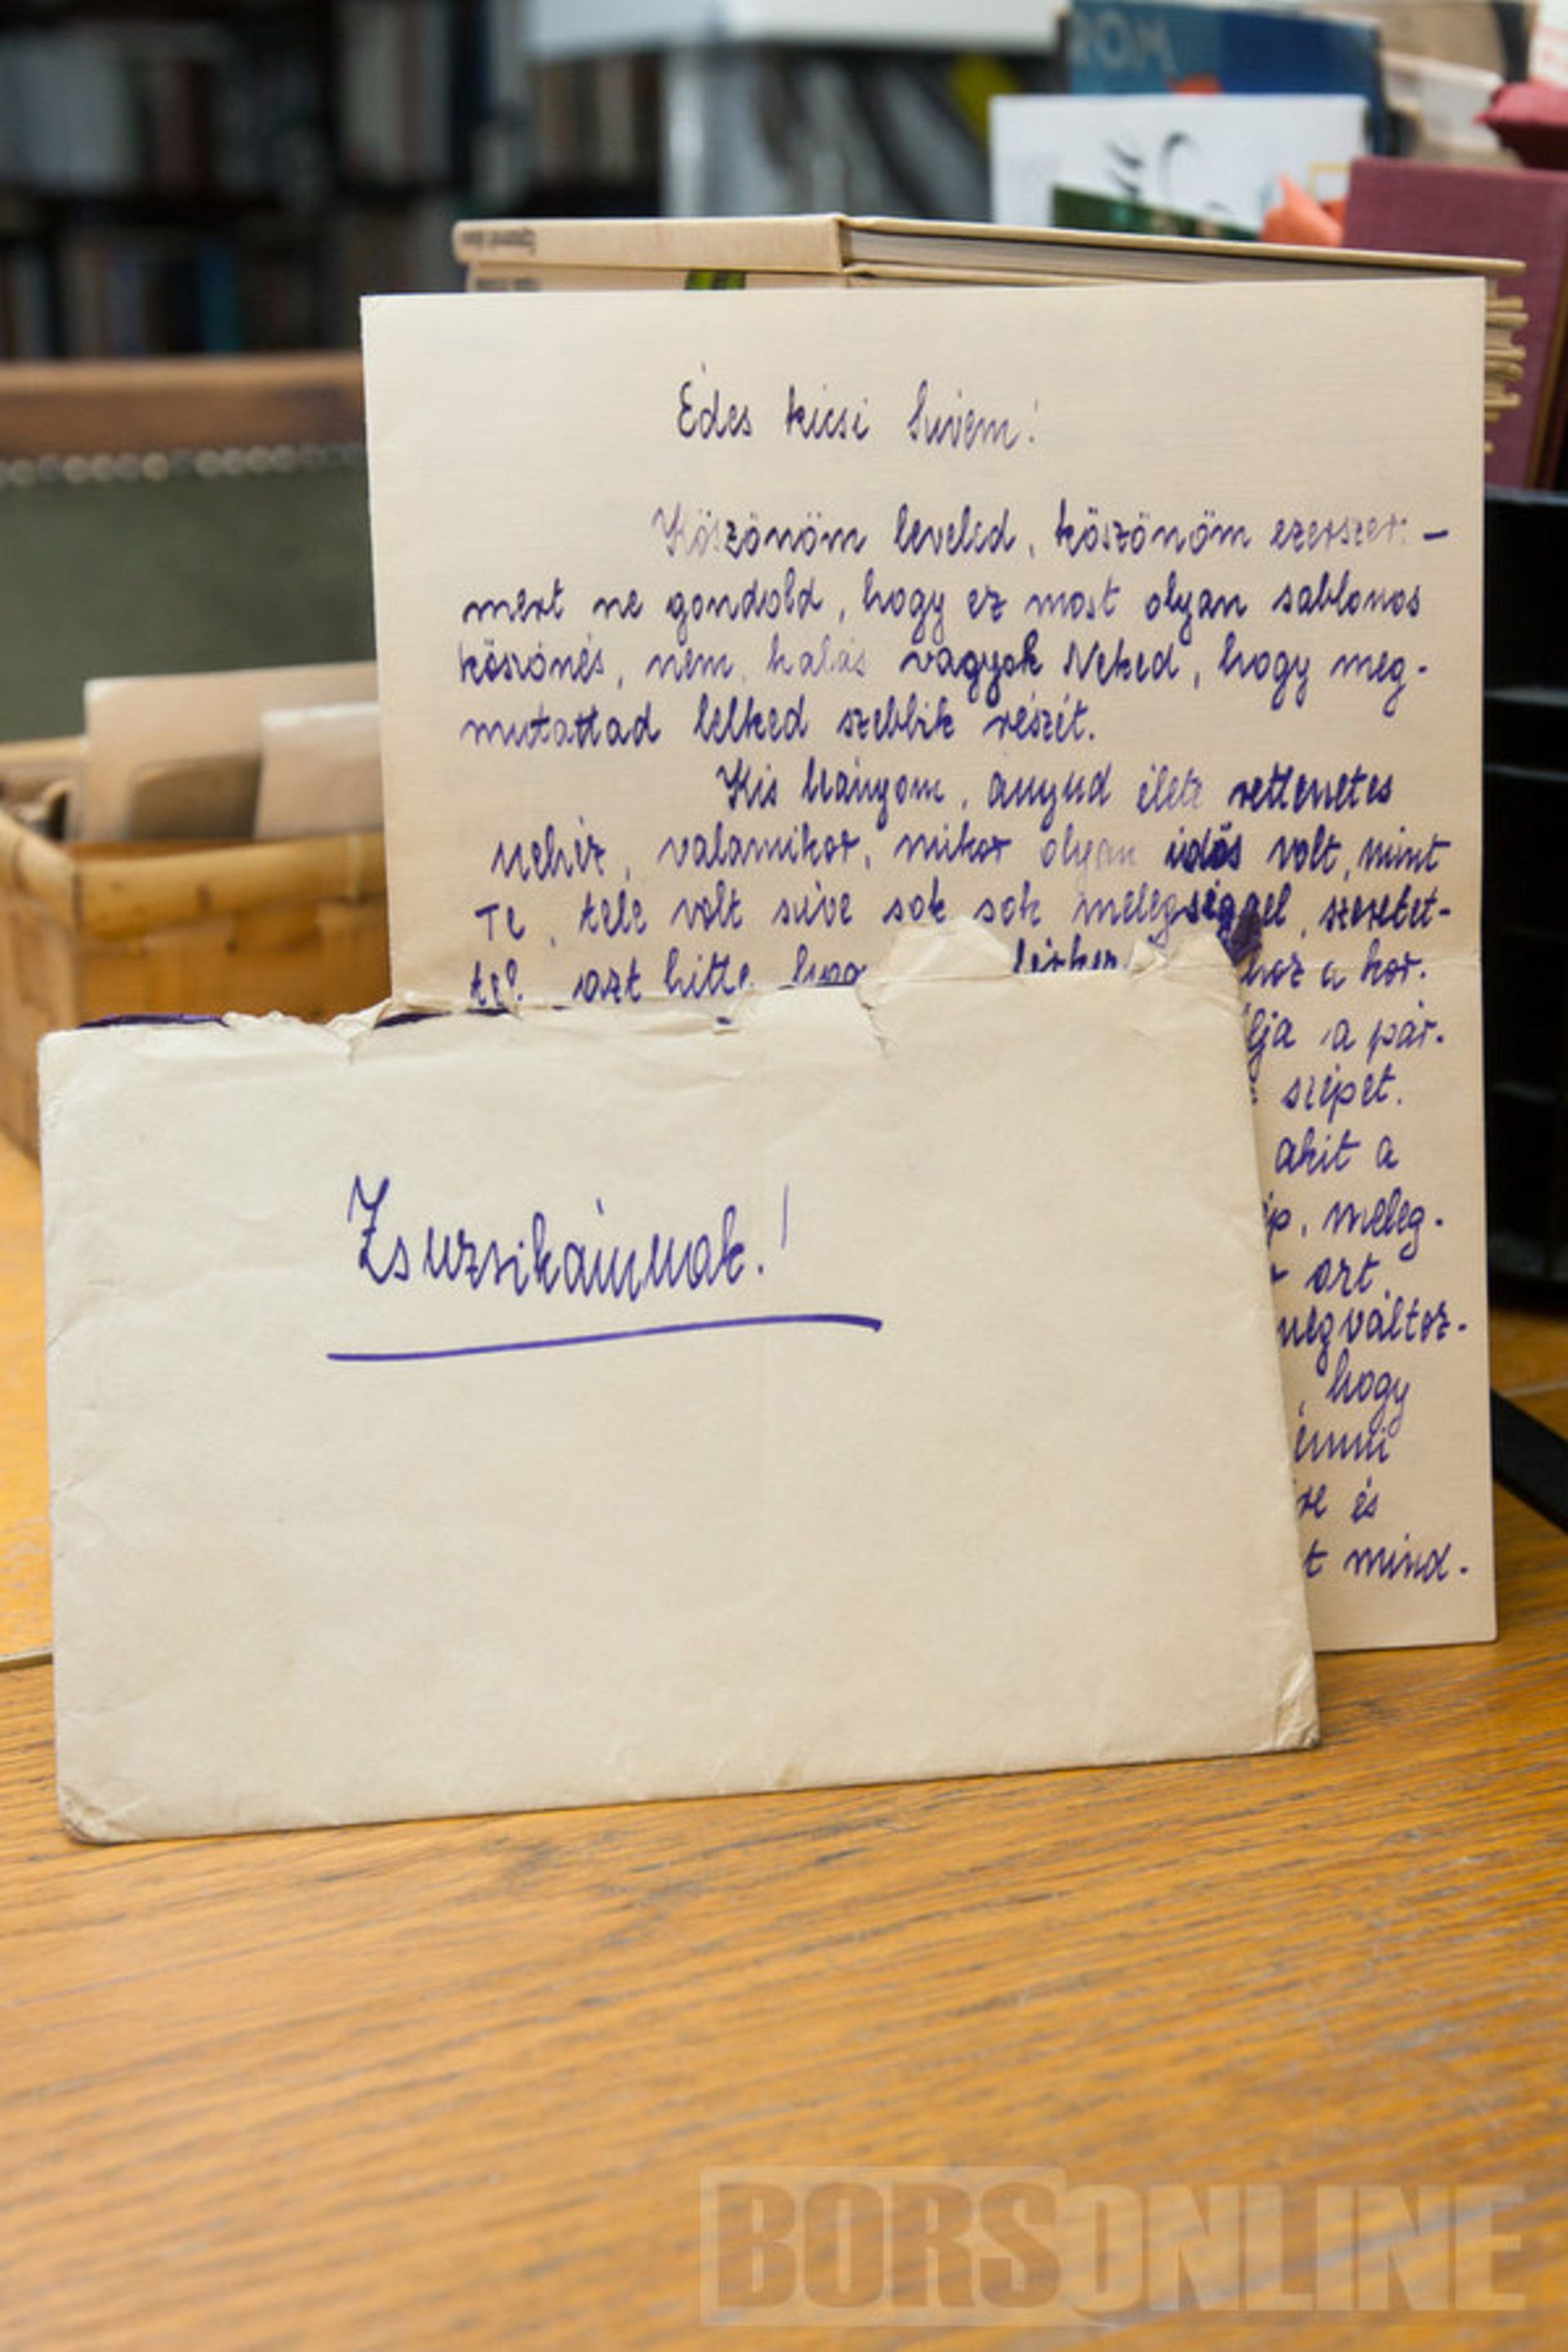 Édes kicsi Szívem!
Köszönöm leveled, köszönöm ezerszer. —
mert ne gondold, hogy ez most olyan sablonos
köszönés, nem, hálás vagyok Neked, hogy meg-
mutattad lelked szebbik részét.
Kis leányom, anyud élete rettenetes
nehéz, valamikor, mikor olyan idős volt, mint
Te, tele volt szíve sok sok melegséggel, szeretet-
tel, azt hitte
a kor-
a pár-
szépet.
akit a
meleg-
azt
megváltoz-
, hogy
és
mind-
Zsuzsikámnak!
BORSONLINE